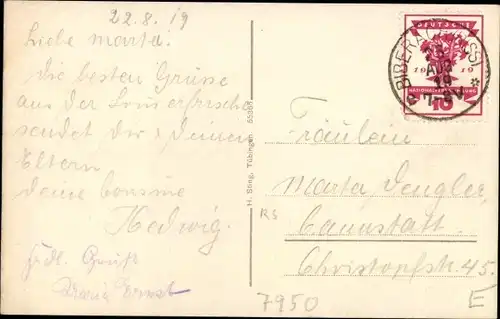 22.8.19
Liebe Marta.
Die besten Grüsse
aus der Sommerfrische
sendet dir & deinen
Eltern
deine Cousine
Hedwig.
Frdl. Gruß
Maria Ernst
H. Sting, Tübingen
Fräulein
Marta Dengler,
Cannstatt
Christophstr. 45.
RS
7950
E
DEUTSCHE
1919
NATIONALVERSAMMLUNG
10
BIBERACH (RISS)
AUG